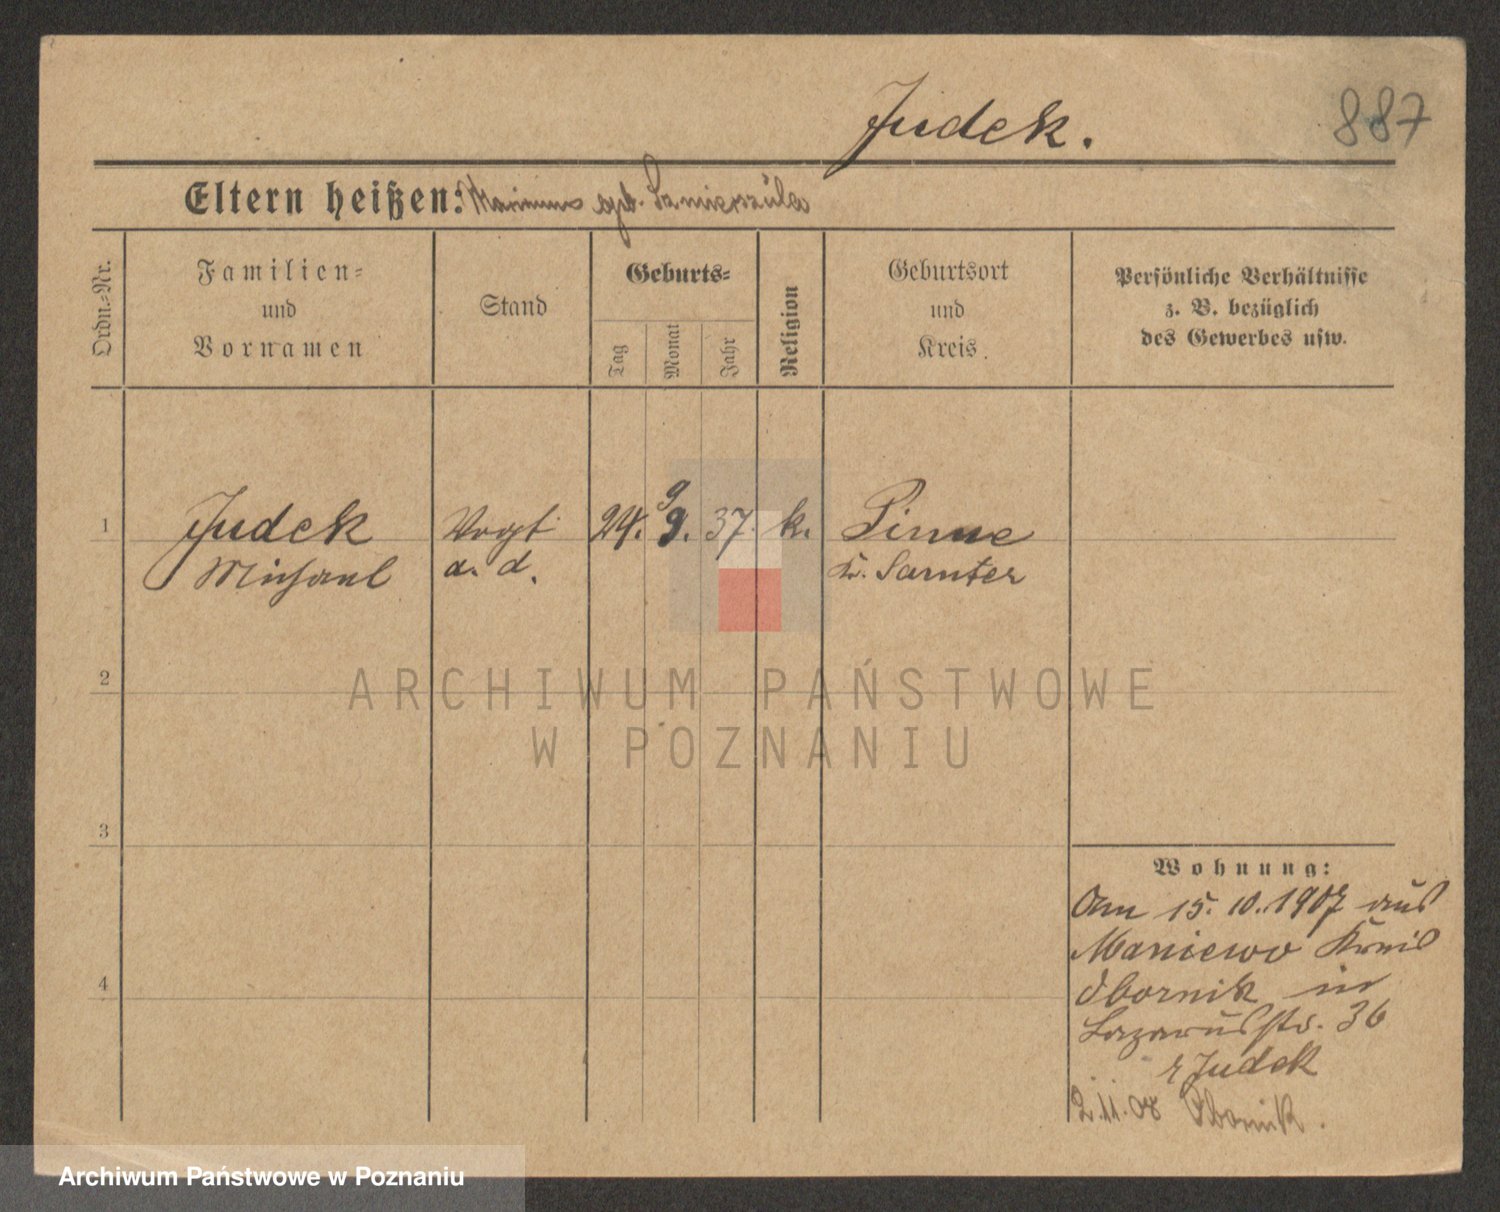 Judek.
887
Eltern heißen: geb.
Ordn.-Nr.
Familien- und Vornamen
Stand
Geburts-
Tag
Monat
Jahr
Religion
Geburtsort und Kreis.
Persönliche Verhältnisse
z. B. bezüglich
des Gewerbes usw.
1
Judek
Michael
Vogt
a. d.
24. 9. 37. k.
9
Pinne
Kr. Samter
2
3
4
Wohnung:
Am 15. 10. 1907 aus
Maniewo Kreis
Obornik in
Lazarusstr. 36
Judek
2.11.08 Obornik.
ARCHIWUM PAŃSTWOWE
W POZNANIU
Archiwum Państwowe w Poznaniu